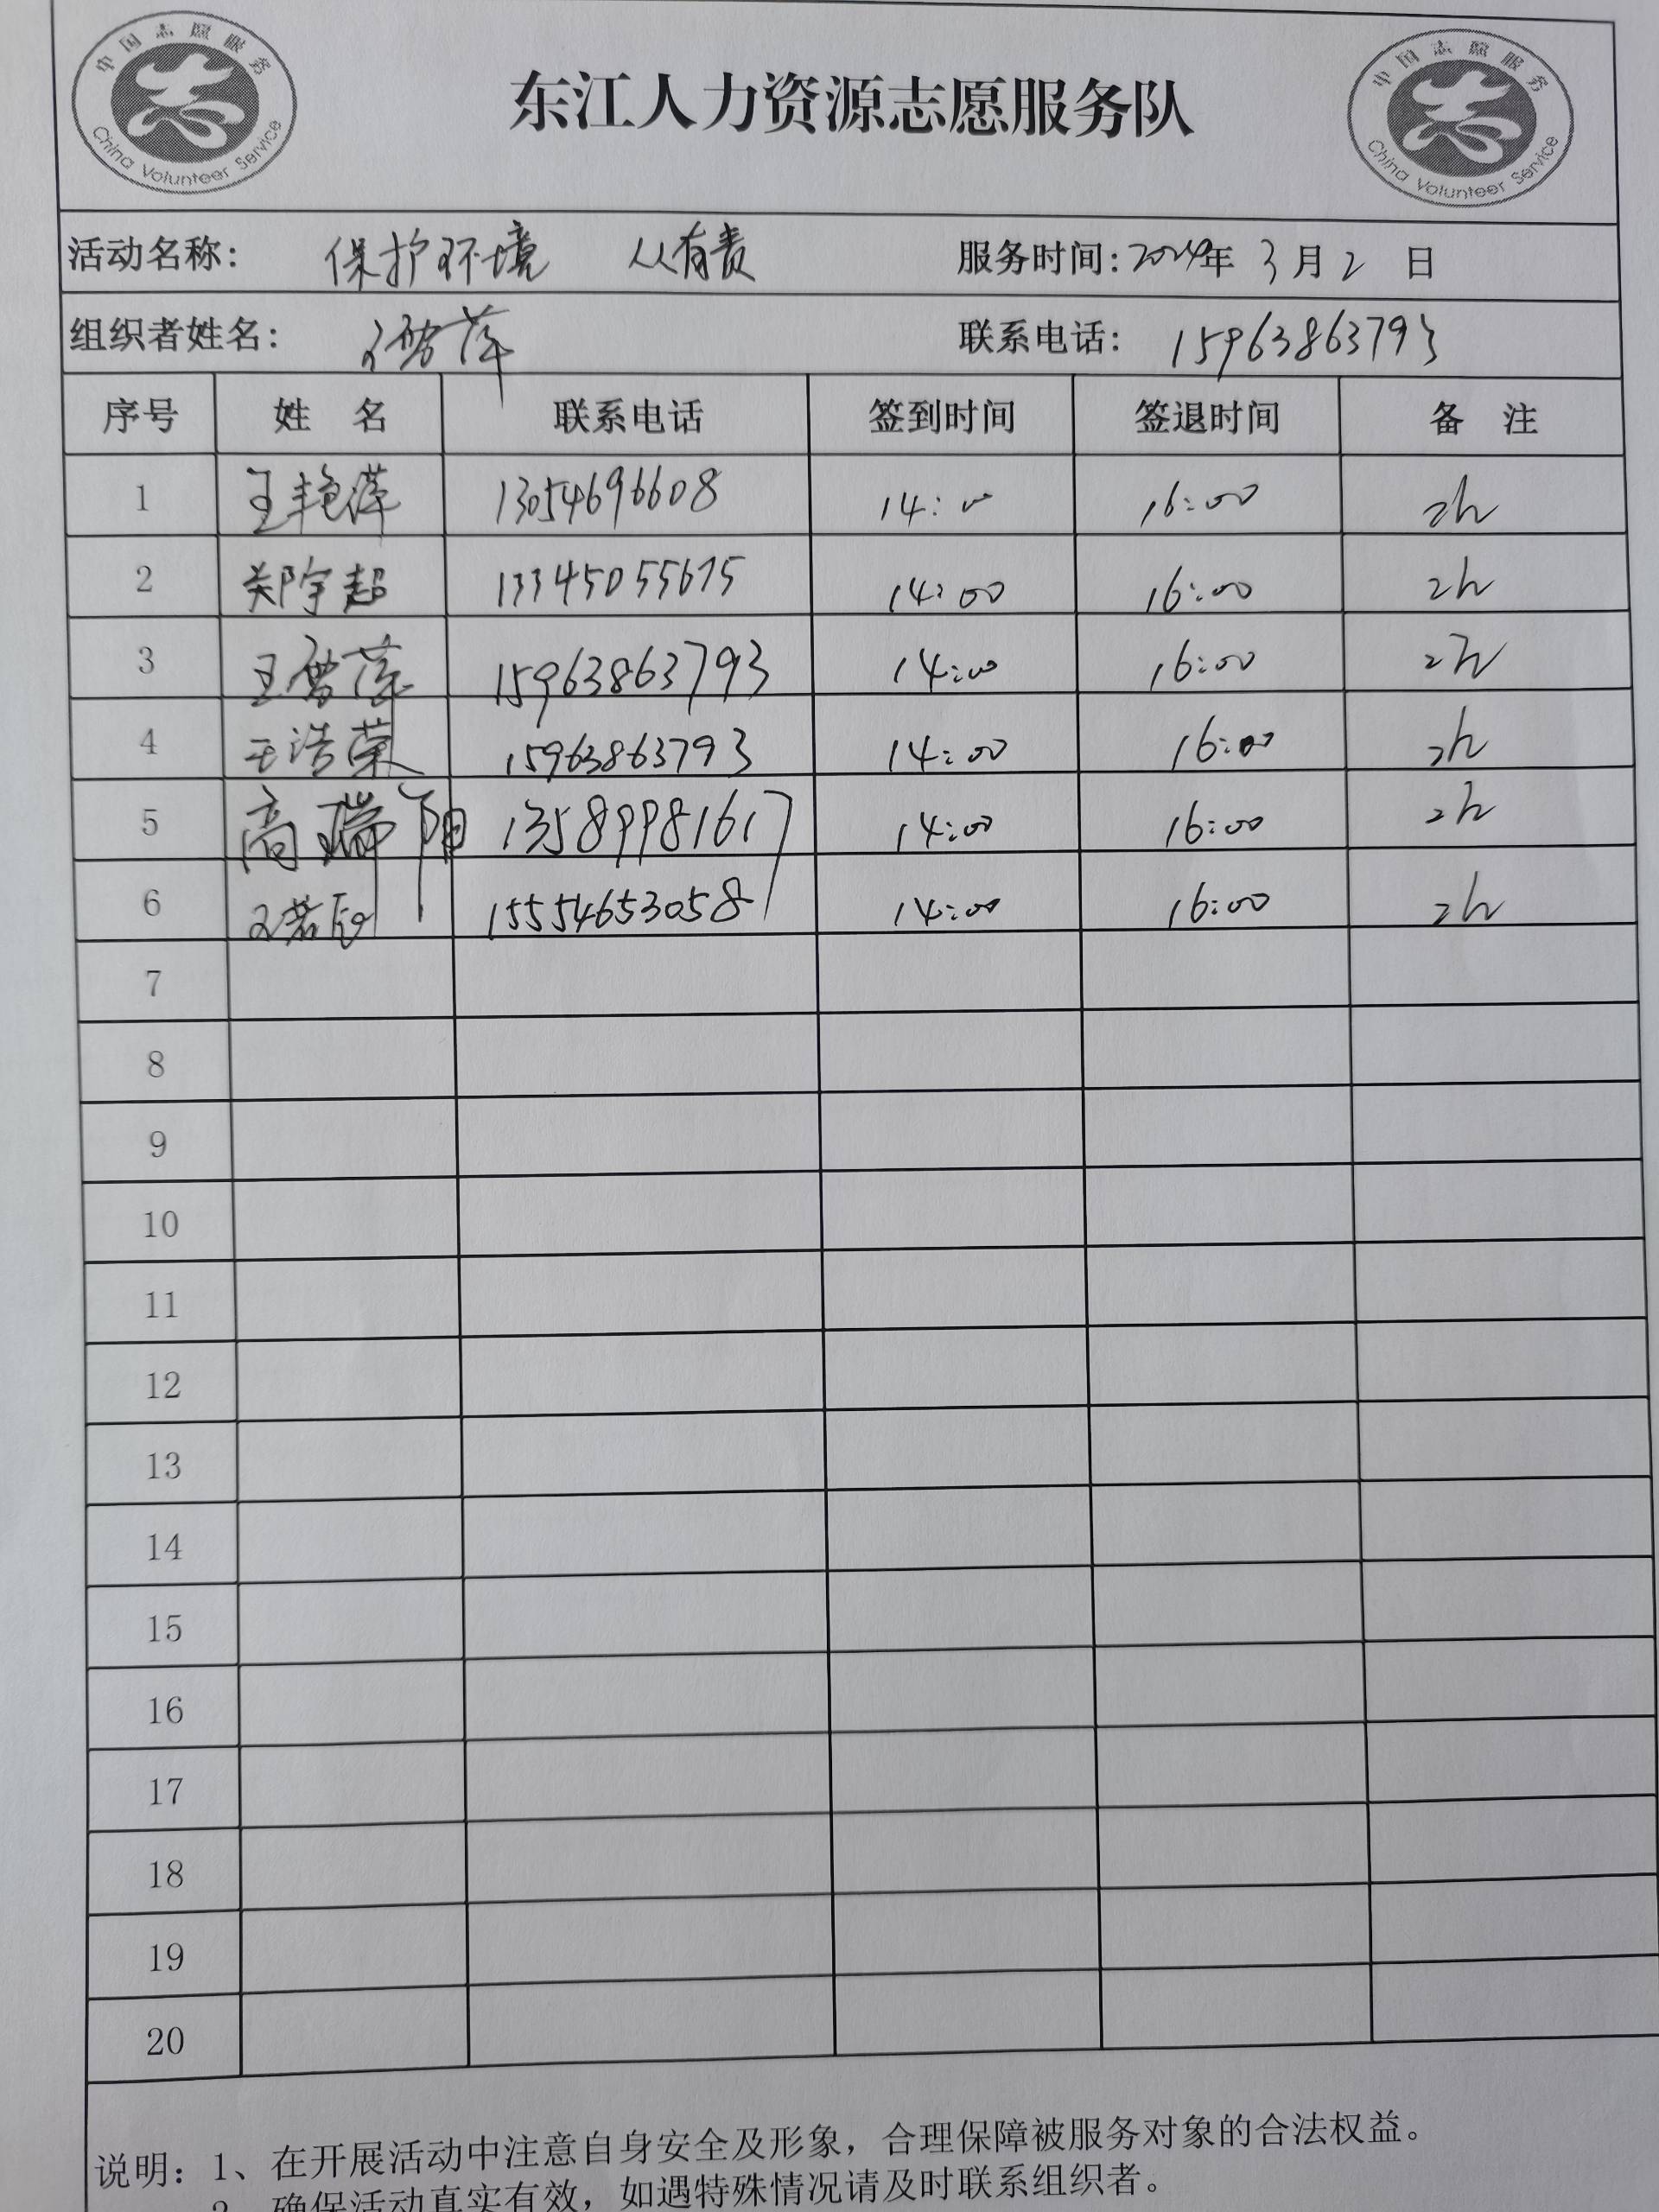 中国志愿服务 China Volunteer Service
东江人力资源志愿服务队
中国志愿服务 China Volunteer Service
活动名称: 保护环境 人人有责 服务时间: 2024年 3月 2 日
组织者姓名: 王雪萍 联系电话: 15963863793
序号 姓 名 联系电话 签到时间 签退时间 备 注
1 王艳萍 13054696608 14:00 16:00 2h
2 郑宇超 13345055675 14:00 16:00 2h
3 王雪萍 15963863793 14:00 16:00 2h
4 王浩荣 15963863793 14:00 16:00 2h
5 高瑞阳 13589981617 14:00 16:00 2h
6 王若 15554653058 14:00 16:00 2h
7
8
9
10
11
12
13
14
15
16
17
18
19
20
说明: 1、在开展活动中注意自身安全及形象，合理保障被服务对象的合法权益。
2、确保活动真实有效，如遇特殊情况请及时联系组织者。